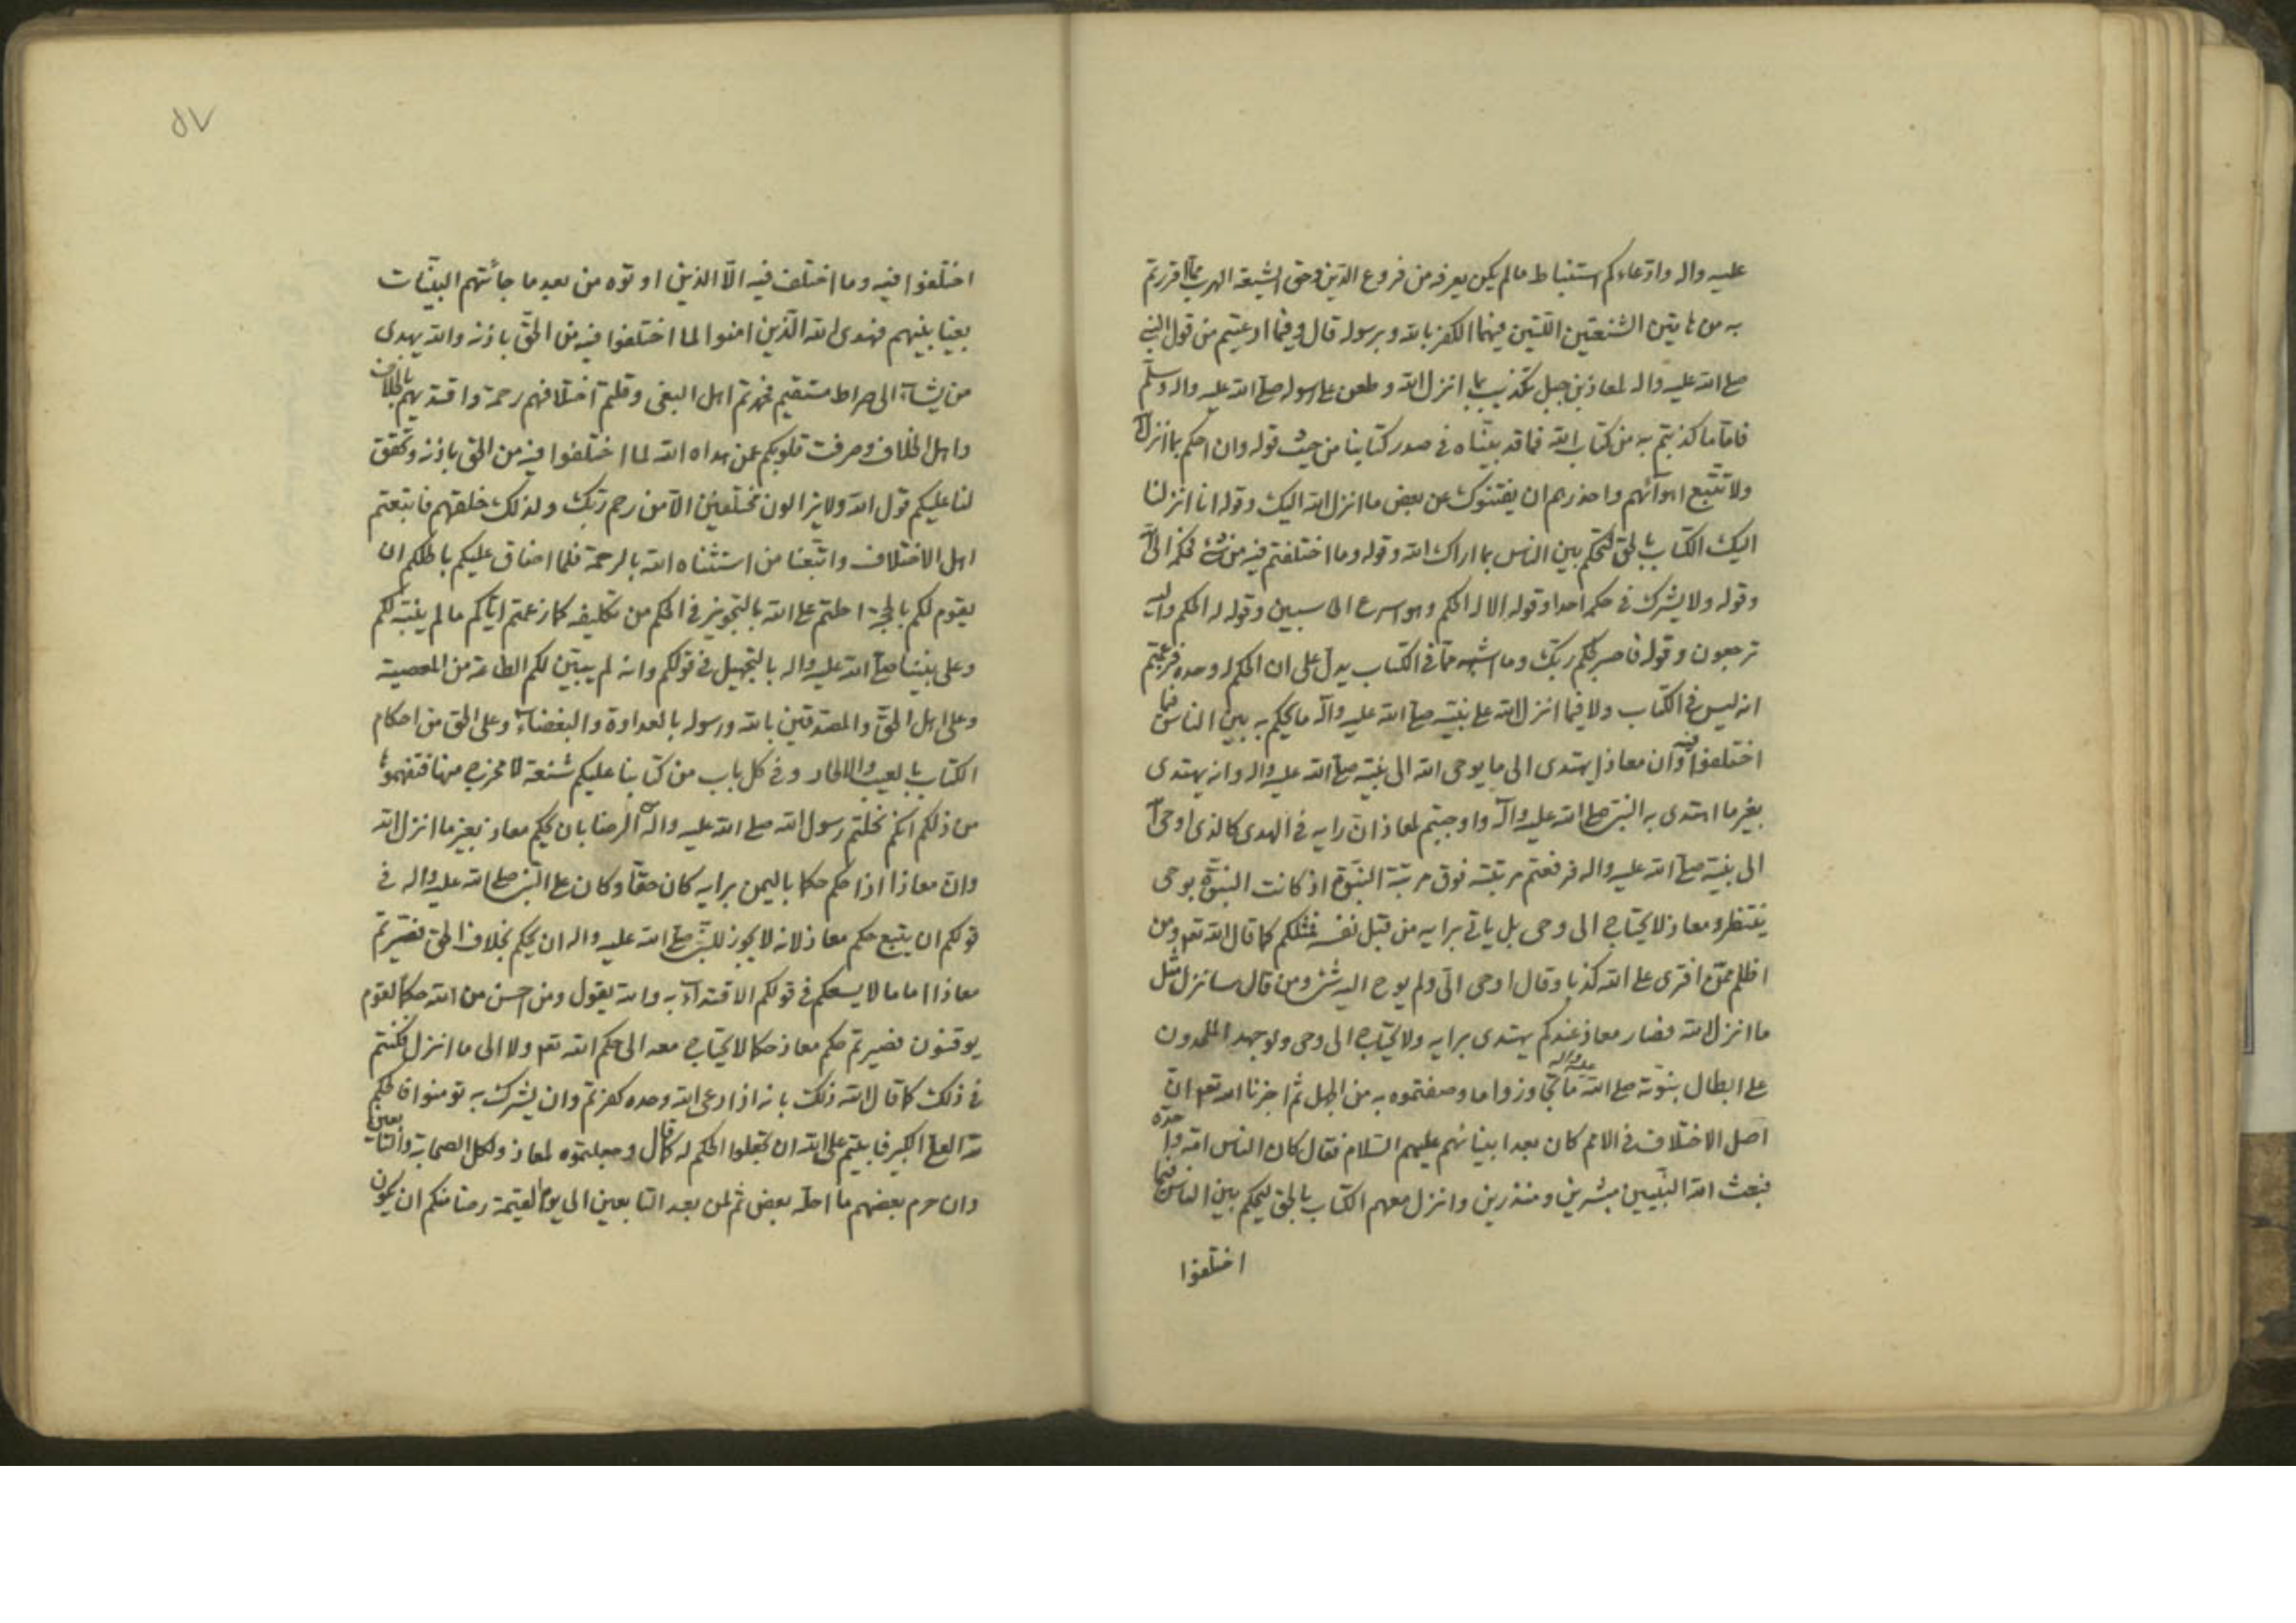 عليه واله وادّعاءكم استنباط ما لم يكن يعرفه من فروع الدّين وحقّ الشيعة الهرب ممّا اقررتم
به من هاتين الشنعتين اللّتين فيهما الكفر بالله وبرسوله قال وفيما ادعيتم من قول النبي
صلى الله عليه واله لمعاذ بن جبل تكذيب بما انزل الله وطعن على رسوله صلى الله عليه واله وسلّم
فامّا ما كذبتم به من كتاب الله فما قد بيّنّاه في صدر كتابنا من حيث قوله وان احكم بما انزل الله
ولا تتّبع اهوآئهم واحذرهم ان يفتنوك عن بعض ما انزل الله اليك وقوله انا انزلنا
اليك الكتاب بالحق لتحكم بين الناس بما اراك الله وقوله وما اختلفتم فيه من شئ فحكمه الى الله
وقوله ولا يشرك في حكمه احدا وقوله الا له الحكم وهو اسرع الحاسبين وقوله له الحكم واليه
ترجعون وقوله فاصبر لحكم ربّك وما اشبهه ممّا في الكتاب يدلّ على ان الحكم لله وحده فزعمتم
انه ليس في الكتاب ولا فيما انزل الله على نبيّه صلى الله عليه وآله ما يحكم به بين الناس فيما
اختلفوا فيه وان معاذا يهتدى الى ما يوحى الله الى نبيّه صلى الله عليه واله وانه يهتدى
بغير ما اهتدى به النبىّ صلى الله عليه وآله واوجبتم لمعاذ انّ رايه في الهدى كالذى اوحى الله
الى نبيّه صلى الله عليه واله فرفعتم مرتبته فوق مرتبة النبوّة اذ كانت النبوّة بوحى
ينتظر ومعاذ لا يحتاج الى وحى بل ياتي برايه من قبل نفسه فمثلكم كما قال الله تعه ومن
اظلم ممّن افترى على الله كذبا وقال اوحى الىّ ولم يوح اليه شئ ومن قال سانزل مثل
ما انزل الله فصار معاذ عندكم يهتدى برايه ولا يحتاج الى وحى ولو جهد الملحدون
على ابطال نبوّته صلى الله عليه واله ما تجاوزوا ما وصفتموه به من الجهل ثم اخبرنا الله تعه انّ
اصل الاختلاف في الامم كان بعد انبيائهم عليهم السّلام فقال كان الناس امّة واحدة
فبعث الله النبيّين مبشرين ومنذرين وانزل معهم الكتاب بالحق ليحكم بين الناس فيما
اختلفوا
٥٧
اختلفوا فيه وما اختلف فيه الّا الذين اوتوه من بعد ما جائتهم البيّنات
بغيا بينهم فهدى الله الّذين امنوا لما اختلفوا فيه من الحقّ باذنه والله يهدى
من يشآء الى صراط مستقيم فحمدتم اهل البغى وقلتم اختلافهم رحمة واقتديتم بالخلاف
واهل الخلاف وصرفت قلوبكم عمن هداه الله لما اختلفوا فيه من الحق باذنه وتحقق
لنا عليكم قول الله ولا يزالون مختلفين الّا من رحم ربّك ولذلك خلقهم فاتبعتم
اهل الاختلاف واتّبعنا من استثناه الله بالرحمة فلما ضاق عليكم باطلكم ان
يقوم لكم بالحجة احلتم على الله بالتجويز في الحكم من تكليفه كما زعمتم ايّاكم ما لم يبيّنه لكم
وعلى نبيّنا صلى الله عليه واله بالتجهيل في قولكم وانه لم يبيّن لكم الطاعة من المعصية
وعلى اهل الحقّ والمصدّقين بالله ورسوله بالعداوة والبغضآء وعلى الحق من احكام
الكتاب بالعيب والالحاد وفي كل باب من كتابنا عليكم شنعة لا مخرج منها فتفهموها
من ذلكم انكم نحلتم رسول الله صلى الله عليه وآله الرضا بان يحكم معاذ بغير ما انزل الله
وانّ معاذا اذا حكم حكما باليمن برايه كان حقّا وكان على النبىّ صلى الله عليه واله في
قولكم ان يتبع حكم معاذ لانه لا يجوز للنبىّ صلى الله عليه واله ان يحكم بخلاف الحق فصيّرتم
معاذا اماما لا يسعكم في قولكم الا الاقتدآء به والله يقول ومن احسن من الله حكما لقوم
يوقنون فصيرتم حكم معاذ حكما لا يحتاج معه الى حكم الله تعه ولا الى ما انزل فكنتم
في ذلك كما قال الله ذلك بانه اذا دعى الله وحده كفرتم وان يشرك به تومنوا فالحكم
لله العلى الكبير فابيتم على الله ان تجعلوا الحكم له كما قال وجعلتموه لمعاذ ولكل الصحابة والتابعين
وان حرم بعضهم ما احلّه بعض ثم لمن بعد التابعين الى يوم القيمة رضا منكم ان يكون